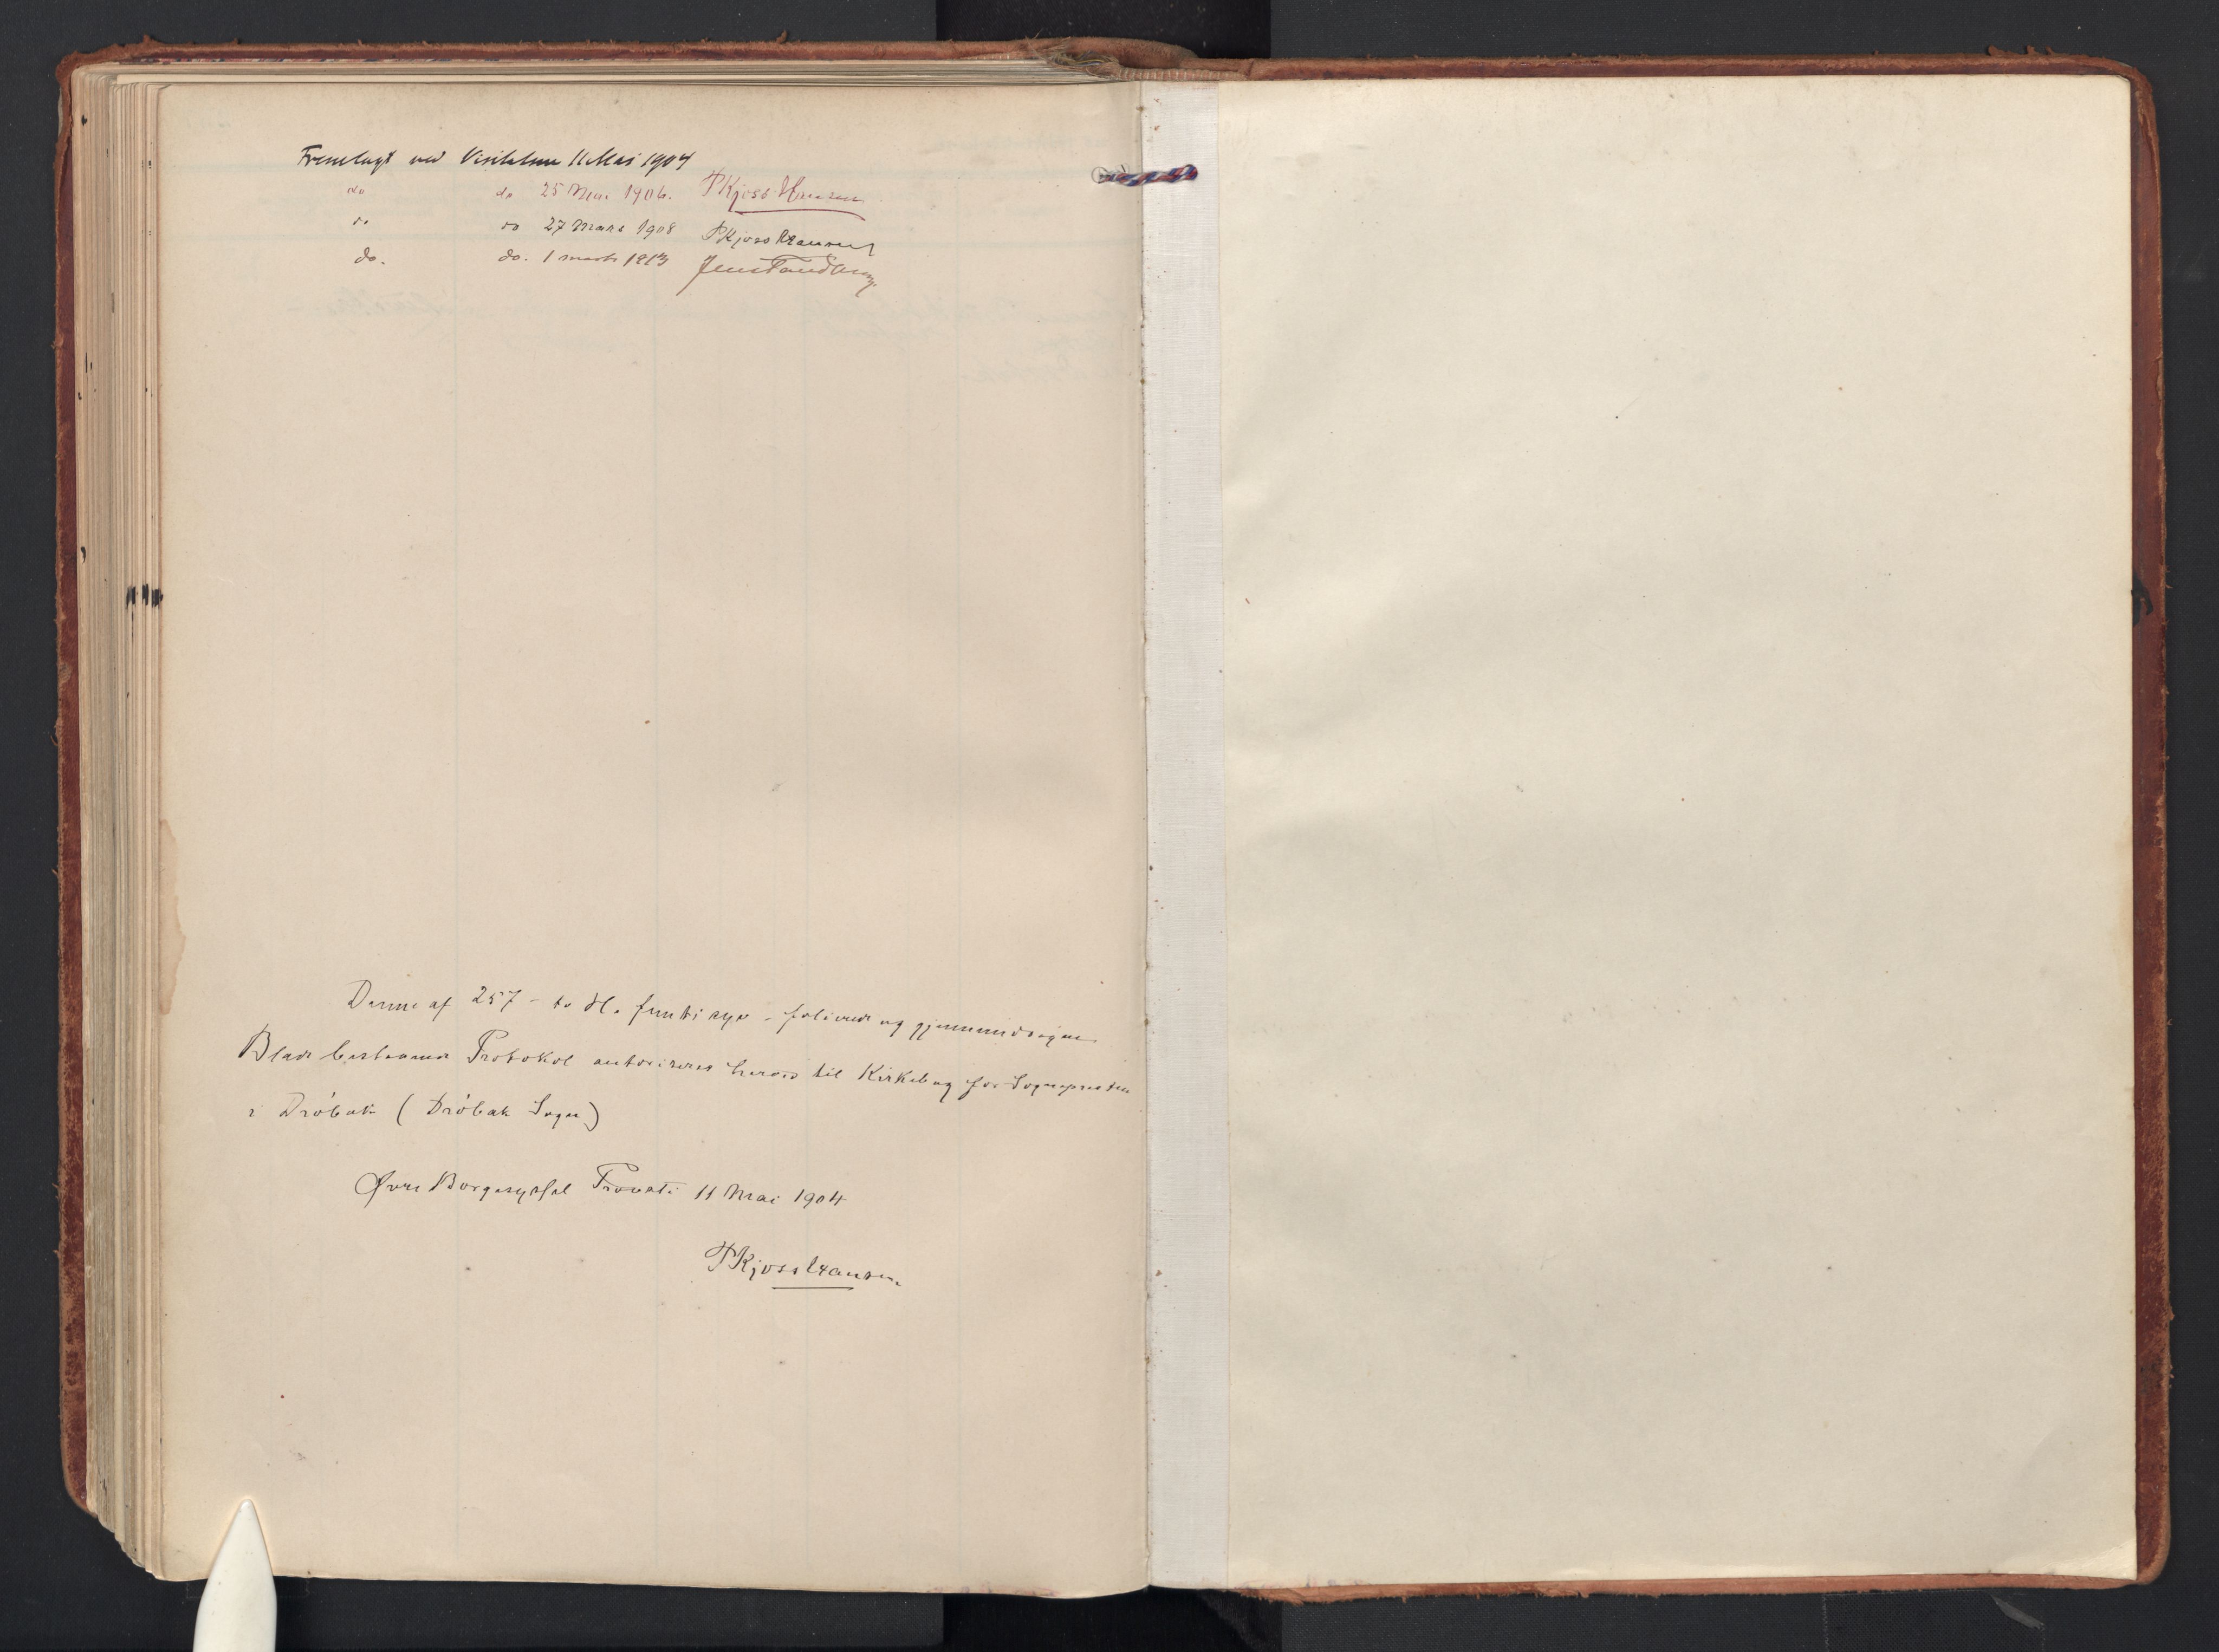 Fremlagt ved Visitatsen 11 Mai 1904
do do 25 Mai 1906. P Kjoss Hansen
do do 27 Mars 1908 P Kjoss Hansen
do. do. 1 marts 1913 Jens Tandberg
Denne af 257 - to H. femti syv - folierede og gjennemdragne
Blade bestaaende Protokol autoriseres herved til Kirkebog for Sognepresten
i Dröbak (Dröbak Sogn)
Øvre Borgesyssel Provsti 11 Mai 1904
P Kjoss Hansen